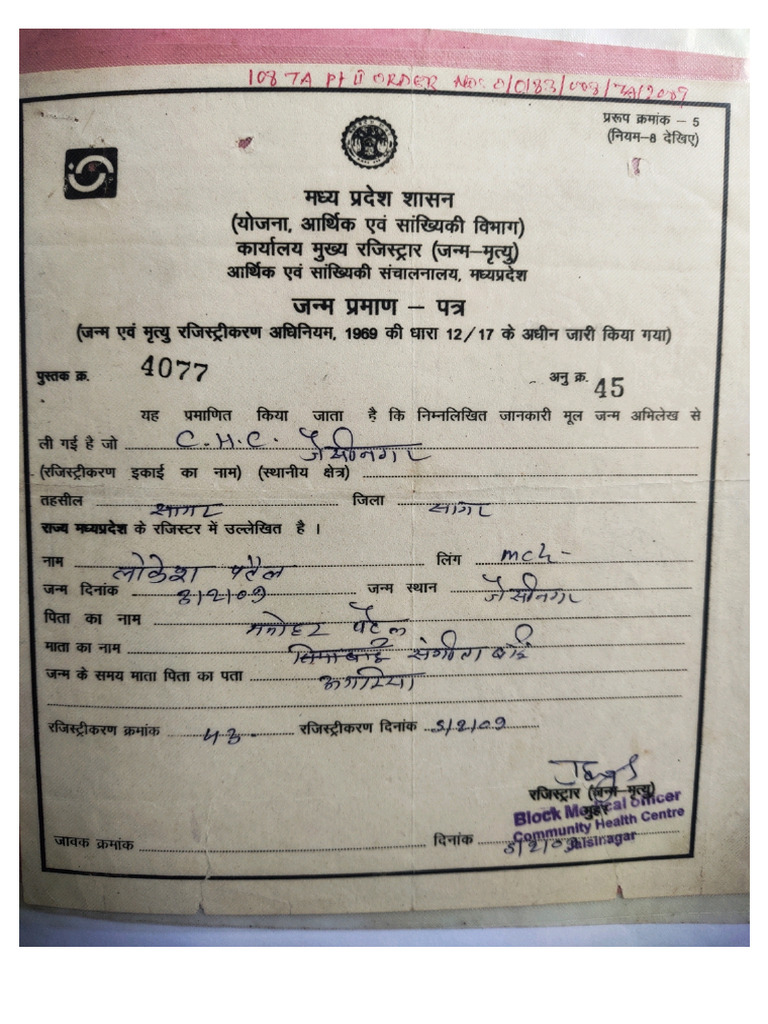 108 TA Pt II ORDER NO: 0/0183/008/TA/2009
प्ररूप क्रमांक – 5
(नियम–8 देखिए)
मध्य प्रदेश शासन
(योजना, आर्थिक एवं सांख्यिकी विभाग)
कार्यालय मुख्य रजिस्ट्रार (जन्म–मृत्यु)
आर्थिक एवं सांख्यिकी संचालनालय, मध्यप्रदेश
जन्म प्रमाण – पत्र
(जन्म एवं मृत्यु रजिस्ट्रीकरण अधिनियम, 1969 की धारा 12/17 के अधीन जारी किया गया)
पुस्तक क्र. 4077 अनु क्र. 45
यह प्रमाणित किया जाता है कि निम्नलिखित जानकारी मूल जन्म अभिलेख से
ली गई है जो C.H.C. जैसीनगर
(रजिस्ट्रीकरण इकाई का नाम) (स्थानीय क्षेत्र)
तहसील सागर जिला सागर
राज्य मध्यप्रदेश के रजिस्टर में उल्लेखित है ।
नाम लोकेश पटैल लिंग mch-
जन्म दिनांक 3/2/09 जन्म स्थान जैसीनगर
पिता का नाम मनोहर पटैल
माता का नाम संगीता बाई
जन्म के समय माता पिता का पता अगरिया
रजिस्ट्रीकरण क्रमांक 43- रजिस्ट्रीकरण दिनांक 5/2/09
रजिस्ट्रार (जन्म–मृत्यु)
मुहर
Block Medical Officer
Community Health Centre
Jaisinagar
जावक क्रमांक दिनांक 5/2/09